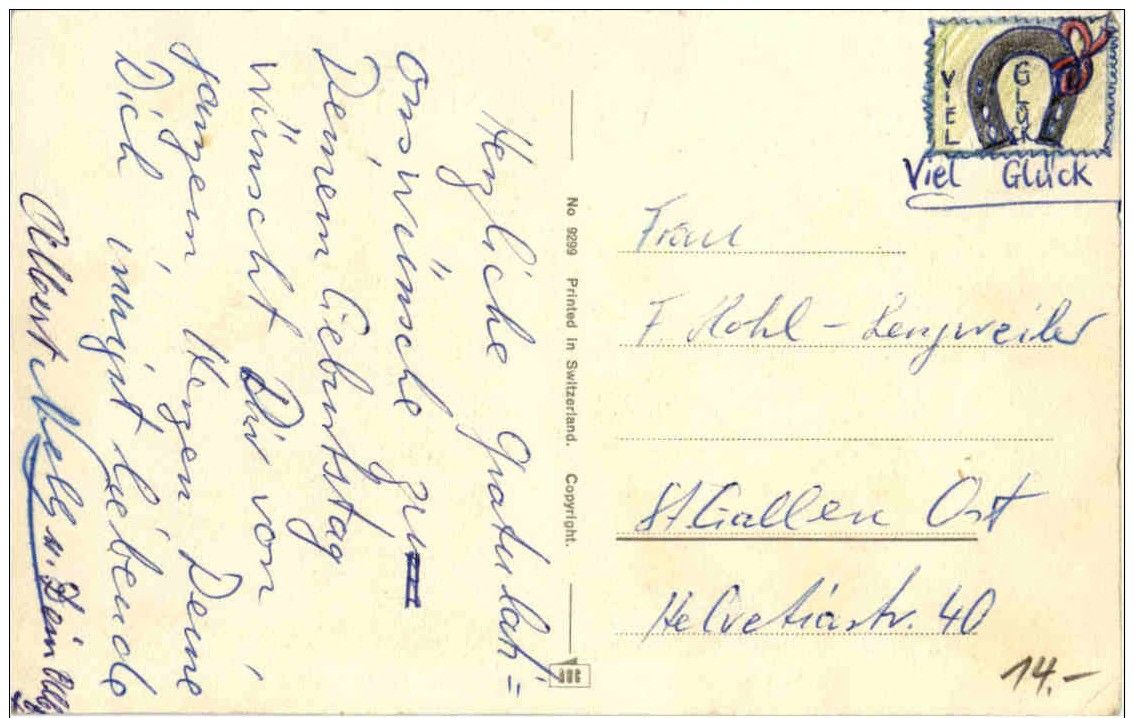 Herzliche Gratulati=
onswünsche zu
Deinem Geburtstag
wünscht Dir von
ganzem Herzen Deine
Dich innigst liebende
Albert Nelly u. Dein
No 9299 Printed in Switzerland. Copyright.
VIEL
GLÜCK
Viel Glück
Frau
F. Hohl - Lengweiler
St Gallen Ost
Helvetiastr. 40
14.-